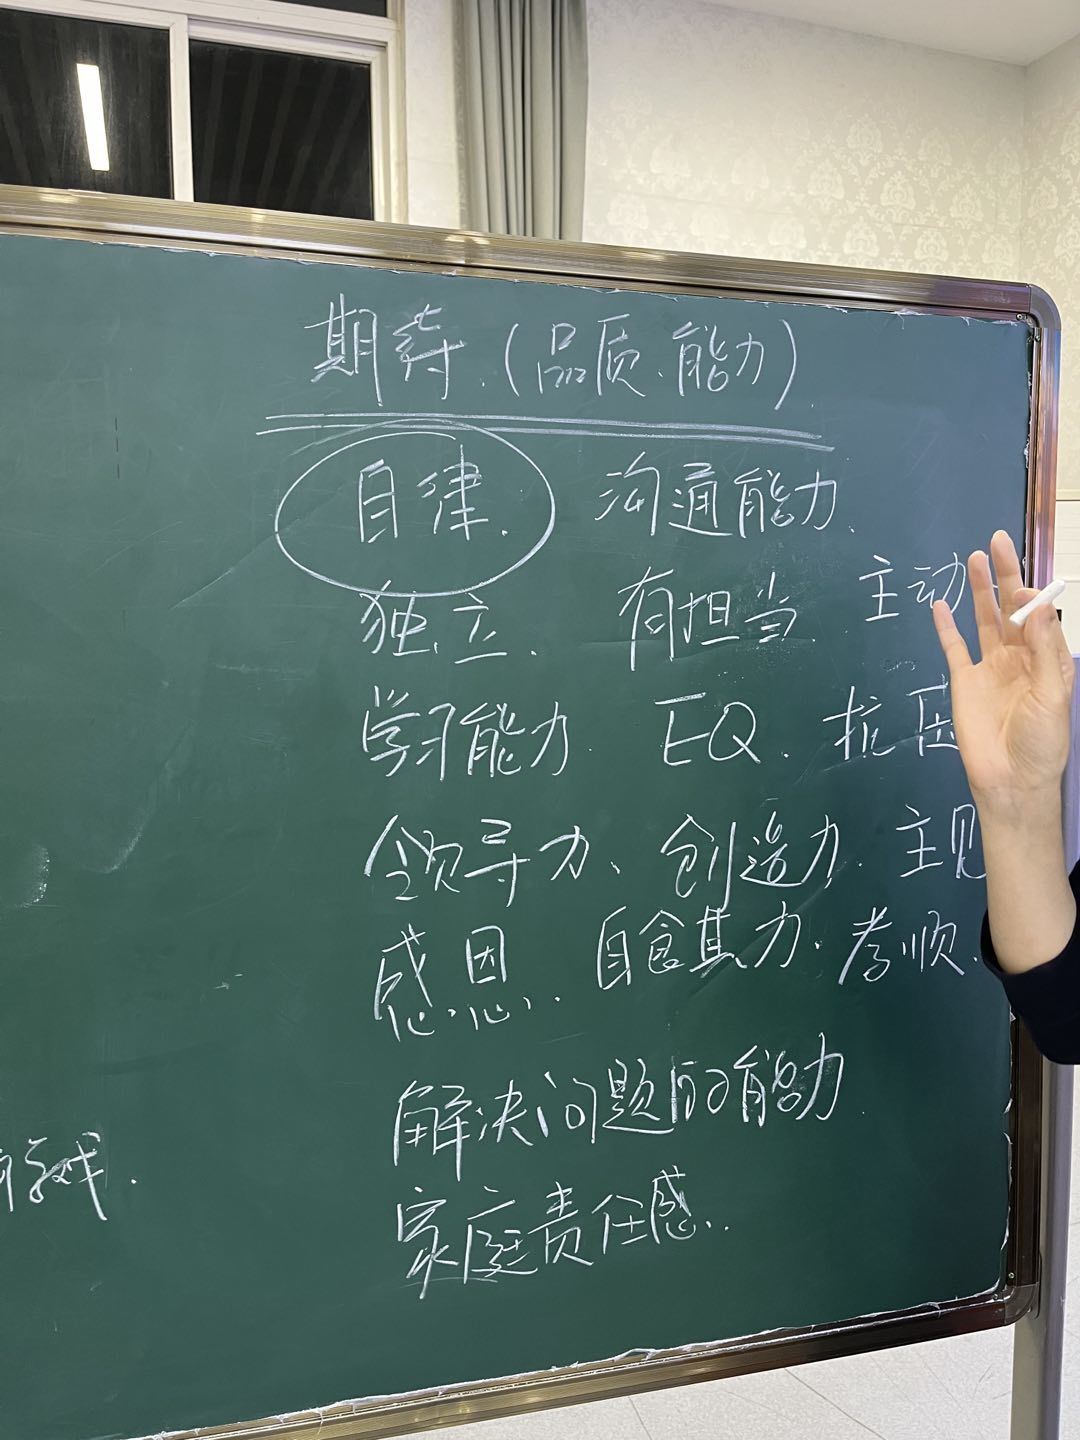 期待.(品质、能力)
自律. 沟通能力.
独立. 有担当. 主动
学习能力. EQ. 抗压
领导力、创造力. 主见
感恩.. 自食其力. 孝顺.
解决问题的能力.
家庭责任感..
游戏.